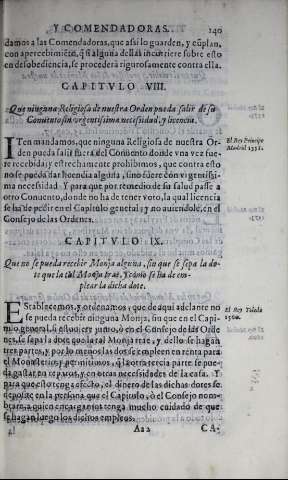 Y COMENDADORAS. 140
damos a las Comendadoras, que assi lo guarden, y cũplan,
con apercebimiẽto, q̃ si alguna dellas incurriere sobre esto
en desobediencia, se procederà rigurosamente contra ella.
CAPITVLO VIII.
Que ninguna Religiosa de nuestra Orden pueda salir de su
Conuento sin vrgentissima necessidad, y licencia.
ITen mandamos, que ninguna Religiosa de nuestra Or-
den pueda salir fuera del Conuento donde vna vez fue-
re recebida; y estrechamente prohibimos, que contra esto
no se pueda dar licencia alguna, sino fuere con vrgentissi-
ma necessidad. Y para que por remedio de su salud passe a
otro Conuento, donde no ha de tener voto, la qual licencia
se ha de pedir en el Capitulo general; y no auiendole, en el
Consejo de las Ordenes.
El Rey Principe
Madrid 1551.
CAPITVLO IX.
Que no se pueda recebir Monja alguna, sin que se sepa la do-
te que la tal Monja trae, y como se ha de em-
plear la dicha dote.
EStablecemos, y ordenamos, que de aqui adelante no
se pueda recebir ninguna Monja, sin que en el Capi-
tulo general, si estuuiere junto, ò en el Consejo de las Orde
nes, se sepa la dote que la tal Monja trae, y dello se hagan
tres partes, y por lo menos las dos se empleen en renta para
el Monasterio; y permitimos, q̃ la otra tercia parte se pue-
da gastar en reparos, y en otras necessidades de la casa. Y
para que esto tenga efecto, el dinero de las dichas dotes se
deposite en la persona que el Capitulo, ò el Consejo nom-
brará, a quien encargamos tenga mucho cuidado de que
se hagan luego los dichos empleos.
El Rey Toledo
1560.
Aa 2 CA-